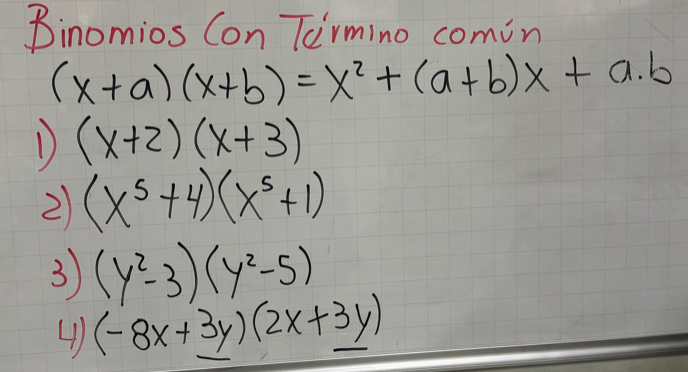 Binomios Con Término común
(x+a)(x+b)=x²+(a+b)x+a.b
1) (x+2)(x+3)
2) (x⁵+4)(x⁵+1)
3) (y²-3)(y²-5)
4) (-8x+3y)(2x+3y)